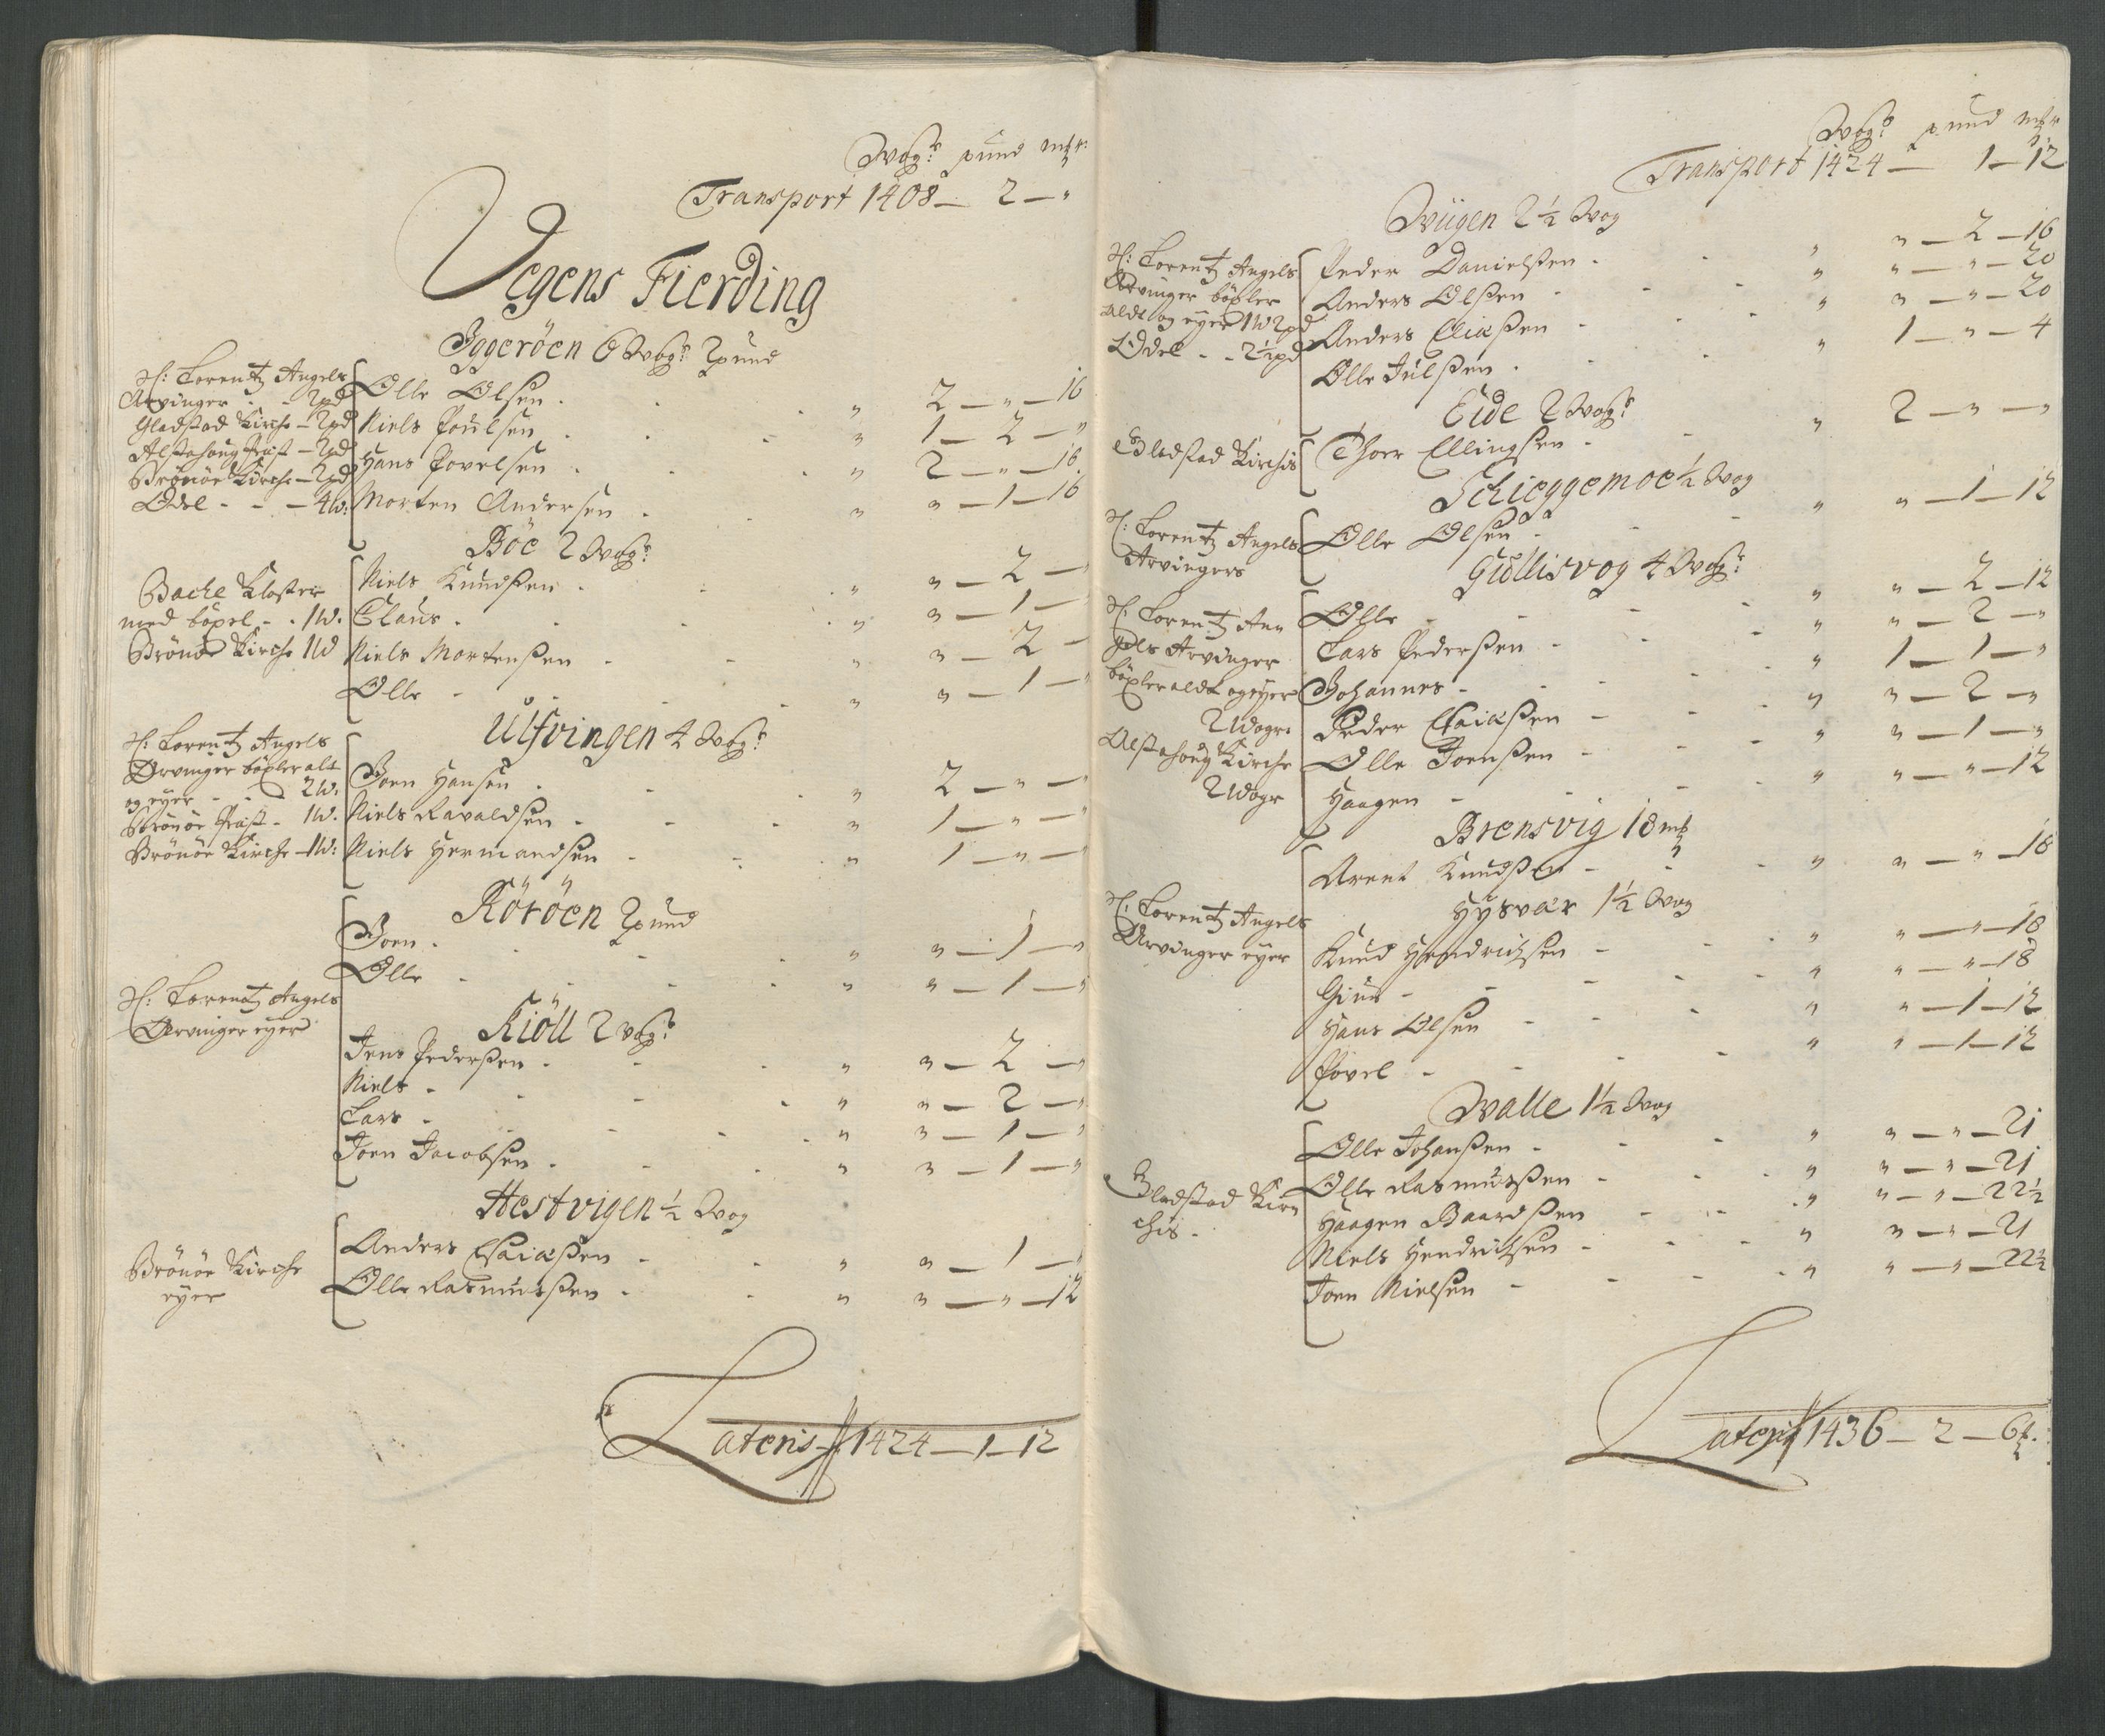 Wog:r pund mk:
Transport 1408 — 2 — "
Vegens Fierding
Iggeröen 6 Wog:r 2 pund
H: Lorentz Angels
Arvinger - - 2 pd
Gladstad Kirche - 2 pd
Alstahoug Præst - 2 pd
Brönöe Kirche - 2 pd
Odel - - - 4 W:
Olle Olsen - " 2 — " — 16
Niels Poulsen - " 1 — 2 — "
Hans Povelsen - " 2 — " — 16
Morten Andersen - " " — 1 — 16
Böe 2 Wog:r
Bache Kloster
med böxel - - 1 W.
Brönöe Kirche 1 W
Niels Knudsen - " " — 2 — "
Claus - " " — 1 — "
Niels Mortensen - " " — 2 — "
Olle - " " — 1 — "
Ulfvingen 4 Wog:r
H: Lorentz Angels
Arvinger böxler alt
og eyer - - 2 W.
Brönöe Præst - 1 W.
Brönöe Kirche - 1 W:
Joen Hansen - " 2 — " — "
Niels Ravaldsen - " 1 — " — "
Niels Hermandsen - " 1 — " — "
Röröen 2 pund
Joen - " " — 1 — "
Olle - " " — 1 — "
H: Lorentz Angels
Arvinger eyer
Kiöll 2 Wog:r
Jens Pedersen - " " — 2 — "
Niels - " " — 2 — "
Lars - " " — 1 — "
Joen Jacobsen - " " — 1 — "
Hestvigen ½ Wog
Brönöe Kirche
eyer
Anders Esaiasen - " " — 1 — "
Olle Rasmussen - " " — " — 12
Lateris 1424 — 1 — 12
Wog:r pund mk:
Transport 1424 — 1 — 12
Wiigen 2½ Wog
H: Lorentz Angels
Arvinger böxler
aldt og eyer 1 W 2 pd
Odel - - 2½ pd
Peder Danielsen - " " — 2 — 16
Anders Olsen - " " — " — 20
Anders Eliasen - " " — " — 20
Olle Julsen - " 1 — " — 4
Eide 2 Wog:r
Gladstad Kirchis
Thoer Ellingsen - " 2 — " — "
Schieggemoe ½ Wog
H: Lorentz Angels
Arvingers
Olle Olsen - " " — 1 — 12
Gullisvog 4 Wog:r
H: Lorentz An
gels Arvinger
böxler aldt og eyer
2 Woger
Alstahoug Kirche
2 Woger
Olle - " " — 2 — 12
Lars Pedersen - " " — 2 — "
Johannes - " 1 — 1 — "
Peder Esaiasen - " " — 2 — "
Olle Joensen - " " — 1 — "
Haagen - " " — " — 12
Brensvig 18 mk
Arent Knudsen - " " — " — 18
Hysvær 1½ Wog
H: Lorentz Angels
Arvinger eyer
Knud Hendrichsen - " " — " — 18
Giue - " " — " — 18
Hans Olsen - " " — 1 — 12
Povel - " " — 1 — 12
Walle 1½ Wog
Gladstad Kir
chis -
Olle Johansen - " " — " — 21
Olle Rasmussen - " " — " — 21
Haagen Baardsen - " " — " — 22½
Niels Hendrichsen - " " — " — 21
Joen Nielsen - " " — " — 22½
Lateris 1436 — 2 — 6